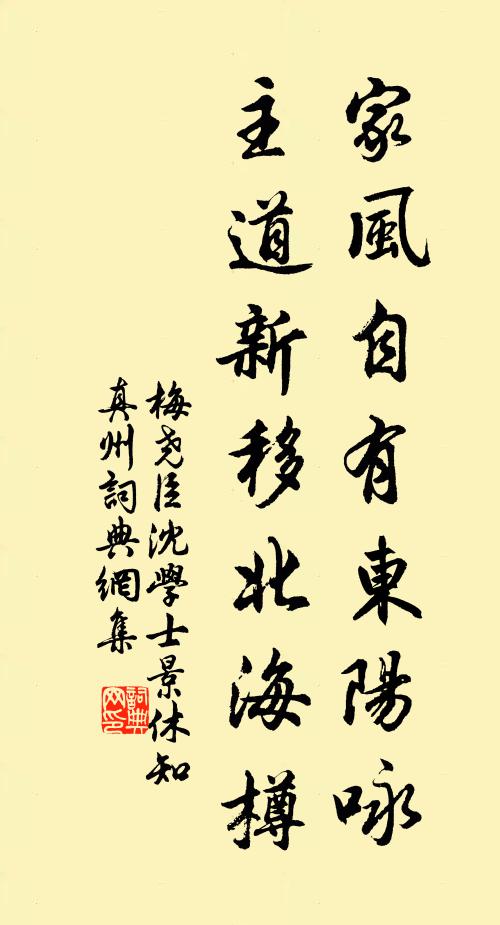 家風自有東陽咏
主道新移北海樽
梅尧臣沈學士景休知
真州詞典網集
詞典网印